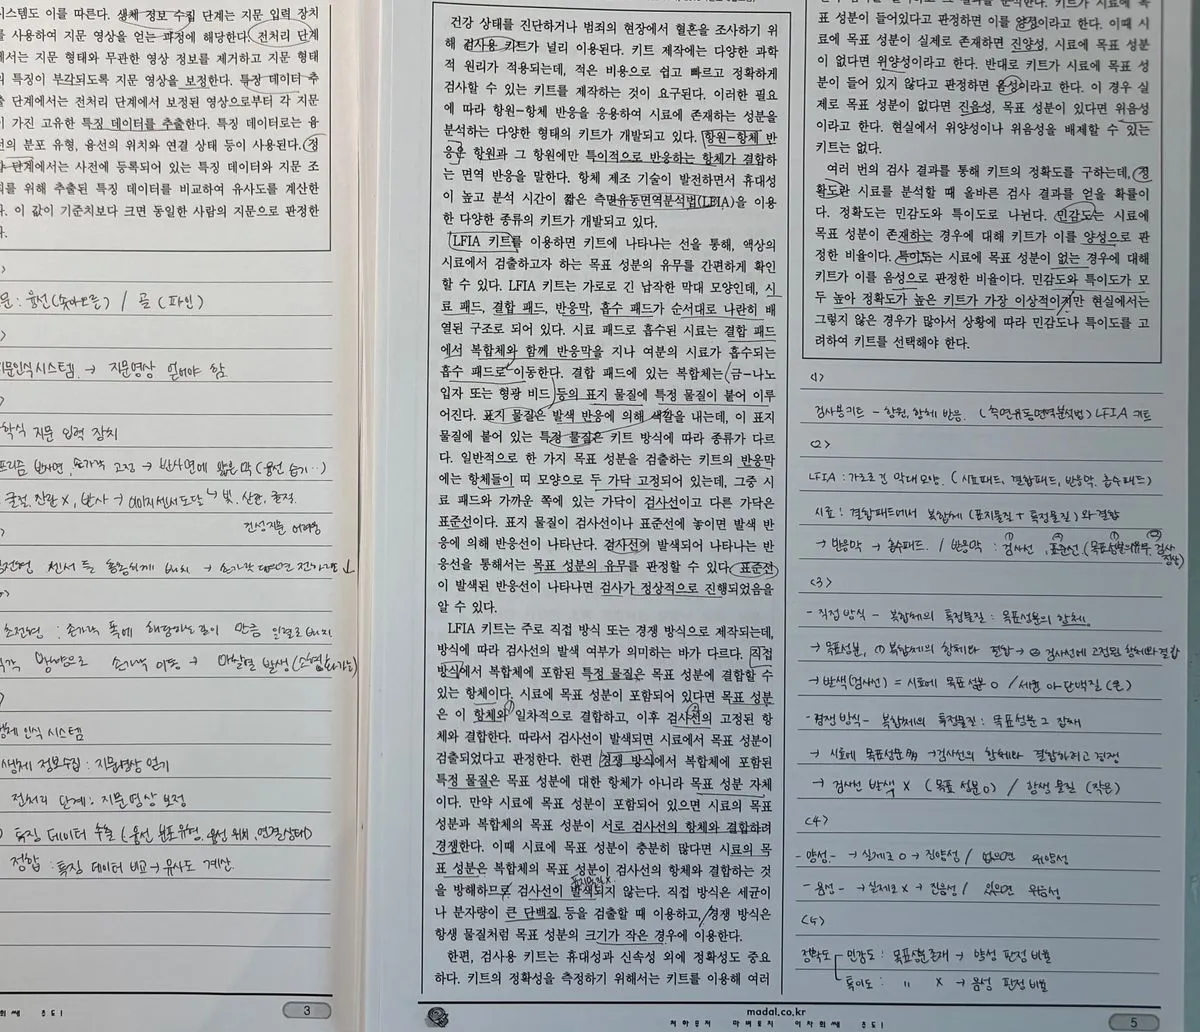 시스템도 이를 따른다. 생체 정보 수집 단계는 지문 입력 장치
를 사용하여 지문 영상을 얻는 과정에 해당한다. 전처리 단계
에서는 지문 형태와 무관한 영상 정보를 제거하고 지문 형태
의 특징이 부각되도록 지문 영상을 보정한다. 특징 데이터 추
출 단계에서는 전처리 단계에서 보정된 영상으로부터 각 지문
이 가진 고유한 특징 데이터를 추출한다. 특징 데이터로는 융
선의 분포 유형, 융선의 위치와 연결 상태 등이 사용된다. 정
합 단계에서는 사전에 등록되어 있는 특징 데이터와 지문 조
회를 위해 추출된 특징 데이터를 비교하여 유사도를 계산한
다. 이 값이 기준치보다 크면 동일한 사람의 지문으로 판정한
다.
문 : 융선(솟아오름) / 골 (파인)
지문인식시스템. → 지문영상 얻어야 함
학식 지문 입력 장치
프리즘 반사면, 손가락 고정 → 반사면에 얇은 막(융선 습기..)
굴절, 산란 X, 반사 → 이미지센서도달 빛, 산란, 굴절.
건성지문 어려움
초전형 : 손가락 폭에 해당하는 길이 만큼 일렬로 배치
손가락 이동 → 마찰열 발생
인식 시스템
생체 정보수집 : 지문영상 얻기
전처리 단계 : 지문영상 보정
특징 데이터 추출 (융선 분포유형, 융선 위치, 연결상태)
정합 : 특징 데이터 비교 → 유사도 계산.
3
건강 상태를 진단하거나 범죄의 현장에서 혈흔을 조사하기 위
해 검사용 키트가 널리 이용된다. 키트 제작에는 다양한 과학
적 원리가 적용되는데, 적은 비용으로 쉽고 빠르고 정확하게
검사할 수 있는 키트를 제작하는 것이 요구된다. 이러한 필요
에 따라 항원-항체 반응을 응용하여 시료에 존재하는 성분을
분석하는 다양한 형태의 키트가 개발되고 있다. 항원-항체 반
응은 항원과 그 항원에만 특이적으로 반응하는 항체가 결합하
는 면역 반응을 말한다. 항체 제조 기술이 발전하면서 휴대성
이 높고 분석 시간이 짧은 측면유동면역분석법(LFIA)을 이용
한 다양한 종류의 키트가 개발되고 있다.
LFIA 키트를 이용하면 키트에 나타나는 선을 통해, 액상의
시료에서 검출하고자 하는 목표 성분의 유무를 간편하게 확인
할 수 있다. LFIA 키트는 가로로 긴 납작한 막대 모양인데, 시
료 패드, 결합 패드, 반응막, 흡수 패드가 순서대로 나란히 배
열된 구조로 되어 있다. 시료 패드로 흡수된 시료는 결합 패드
에서 복합체와 함께 반응막을 지나 여분의 시료가 흡수되는
흡수 패드로 이동한다. 결합 패드에 있는 복합체는 금-나노
입자 또는 형광 비드 등의 표지 물질에 특정 물질이 붙어 이루
어진다. 표지 물질은 발색 반응에 의해 색깔을 내는데, 이 표지
물질에 붙어 있는 특정 물질은 키트 방식에 따라 종류가 다르
다. 일반적으로 한 가지 목표 성분을 검출하는 키트의 반응막
에는 항체들이 띠 모양으로 두 가닥 고정되어 있는데, 그중 시
료 패드와 가까운 쪽에 있는 가닥이 검사선이고 다른 가닥은
표준선이다. 표지 물질이 검사선이나 표준선에 놓이면 발색 반
응에 의해 반응선이 나타난다. 검사선이 발색되어 나타나는 반
응선을 통해서는 목표 성분의 유무를 판정할 수 있다. 표준선
이 발색된 반응선이 나타나면 검사가 정상적으로 진행되었음을
알 수 있다.
LFIA 키트는 주로 직접 방식 또는 경쟁 방식으로 제작되는데,
방식에 따라 검사선의 발색 여부가 의미하는 바가 다르다. 직접
방식에서 복합체에 포함된 특정 물질은 목표 성분에 결합할 수
있는 항체이다. 시료에 목표 성분이 포함되어 있다면 목표 성분
은 이 항체와 일차적으로 결합하고, 이후 검사선의 고정된 항
체와 결합한다. 따라서 검사선이 발색되면 시료에서 목표 성분이
검출되었다고 판정한다. 한편 경쟁 방식에서 복합체에 포함된
특정 물질은 목표 성분에 대한 항체가 아니라 목표 성분 자체
이다. 만약 시료에 목표 성분이 포함되어 있으면 시료의 목표
성분과 복합체의 목표 성분이 서로 검사선의 항체와 결합하려
경쟁한다. 이때 시료에 목표 성분이 충분히 많다면 시료의 목
표 성분은 복합체의 목표 성분이 검사선의 항체와 결합하는 것
을 방해하므로 검사선이 발색되지 않는다. 직접 방식은 세균이
나 분자량이 큰 단백질 등을 검출할 때 이용하고, 경쟁 방식은
항생 물질처럼 목표 성분의 크기가 작은 경우에 이용한다.
한편, 검사용 키트는 휴대성과 신속성 외에 정확성도 중요
하다. 키트의 정확성을 측정하기 위해서는 키트를 이용해 여러
표 성분이 들어있다고 판정하면 이를 양성이라고 한다. 이때 시
료에 목표 성분이 실제로 존재하면 진양성, 시료에 목표 성분
이 없다면 위양성이라고 한다. 반대로 키트가 시료에 목표 성
분이 들어 있지 않다고 판정하면 음성이라고 한다. 이 경우 실
제로 목표 성분이 없다면 진음성, 목표 성분이 있다면 위음성
이라고 한다. 현실에서 위양성이나 위음성을 배제할 수 있는
키트는 없다.
여러 번의 검사 결과를 통해 키트의 정확도를 구하는데, 정
확도란 시료를 분석할 때 올바른 검사 결과를 얻을 확률이
다. 정확도는 민감도와 특이도로 나뉜다. 민감도는 시료에
목표 성분이 존재하는 경우에 대해 키트가 이를 양성으로 판
정한 비율이다. 특이도는 시료에 목표 성분이 없는 경우에 대해
키트가 이를 음성으로 판정한 비율이다. 민감도와 특이도가 모
두 높아 정확도가 높은 키트가 가장 이상적이지만 현실에서는
그렇지 않은 경우가 많아서 상황에 따라 민감도나 특이도를 고
려하여 키트를 선택해야 한다.
<1>
검사용키트 - 항원, 항체 반응. (측면유동면역분석법) LFIA 키트
<2>
LFIA : 가로로 긴 막대 모양. (시료패드, 결합패드, 반응막, 흡수패드)
시료 : 결합패드에서 복합체 (표지물질 + 특정물질)와 결합
→ 반응막 → 흡수패드. / 반응막 : 검사선, 표준선 (목표성분의유무, 검사 정상)
<3>
- 직접 방식 - 복합체의 특정물질 : 목표성분의 항체.
→ 목표성분, ① 복합체의 항체와 결합 → ② 검사선에 고정된 항체와 결합
→ 발색(검사선) = 시료에 목표 성분 O / 세균 아 단백질 (큰)
- 경쟁 방식 - 복합체의 특정물질 : 목표성분 그 자체
→ 시료에 목표성분 많 → 검사선의 항체와 결합하려고 경쟁
→ 검사선 발색 X (목표 성분 O) / 항생 물질 (작은)
<4>
- 양성. - → 실제로 O → 진양성 / 없으면 위양성
- 음성 - → 실제로 X → 진음성 / 있으면 위음성
<5>
정확도 민감도 : 목표성분존재 → 양성 판정 비율
특이도 : " X → 음성 판정 비율
madal.co.kr
5